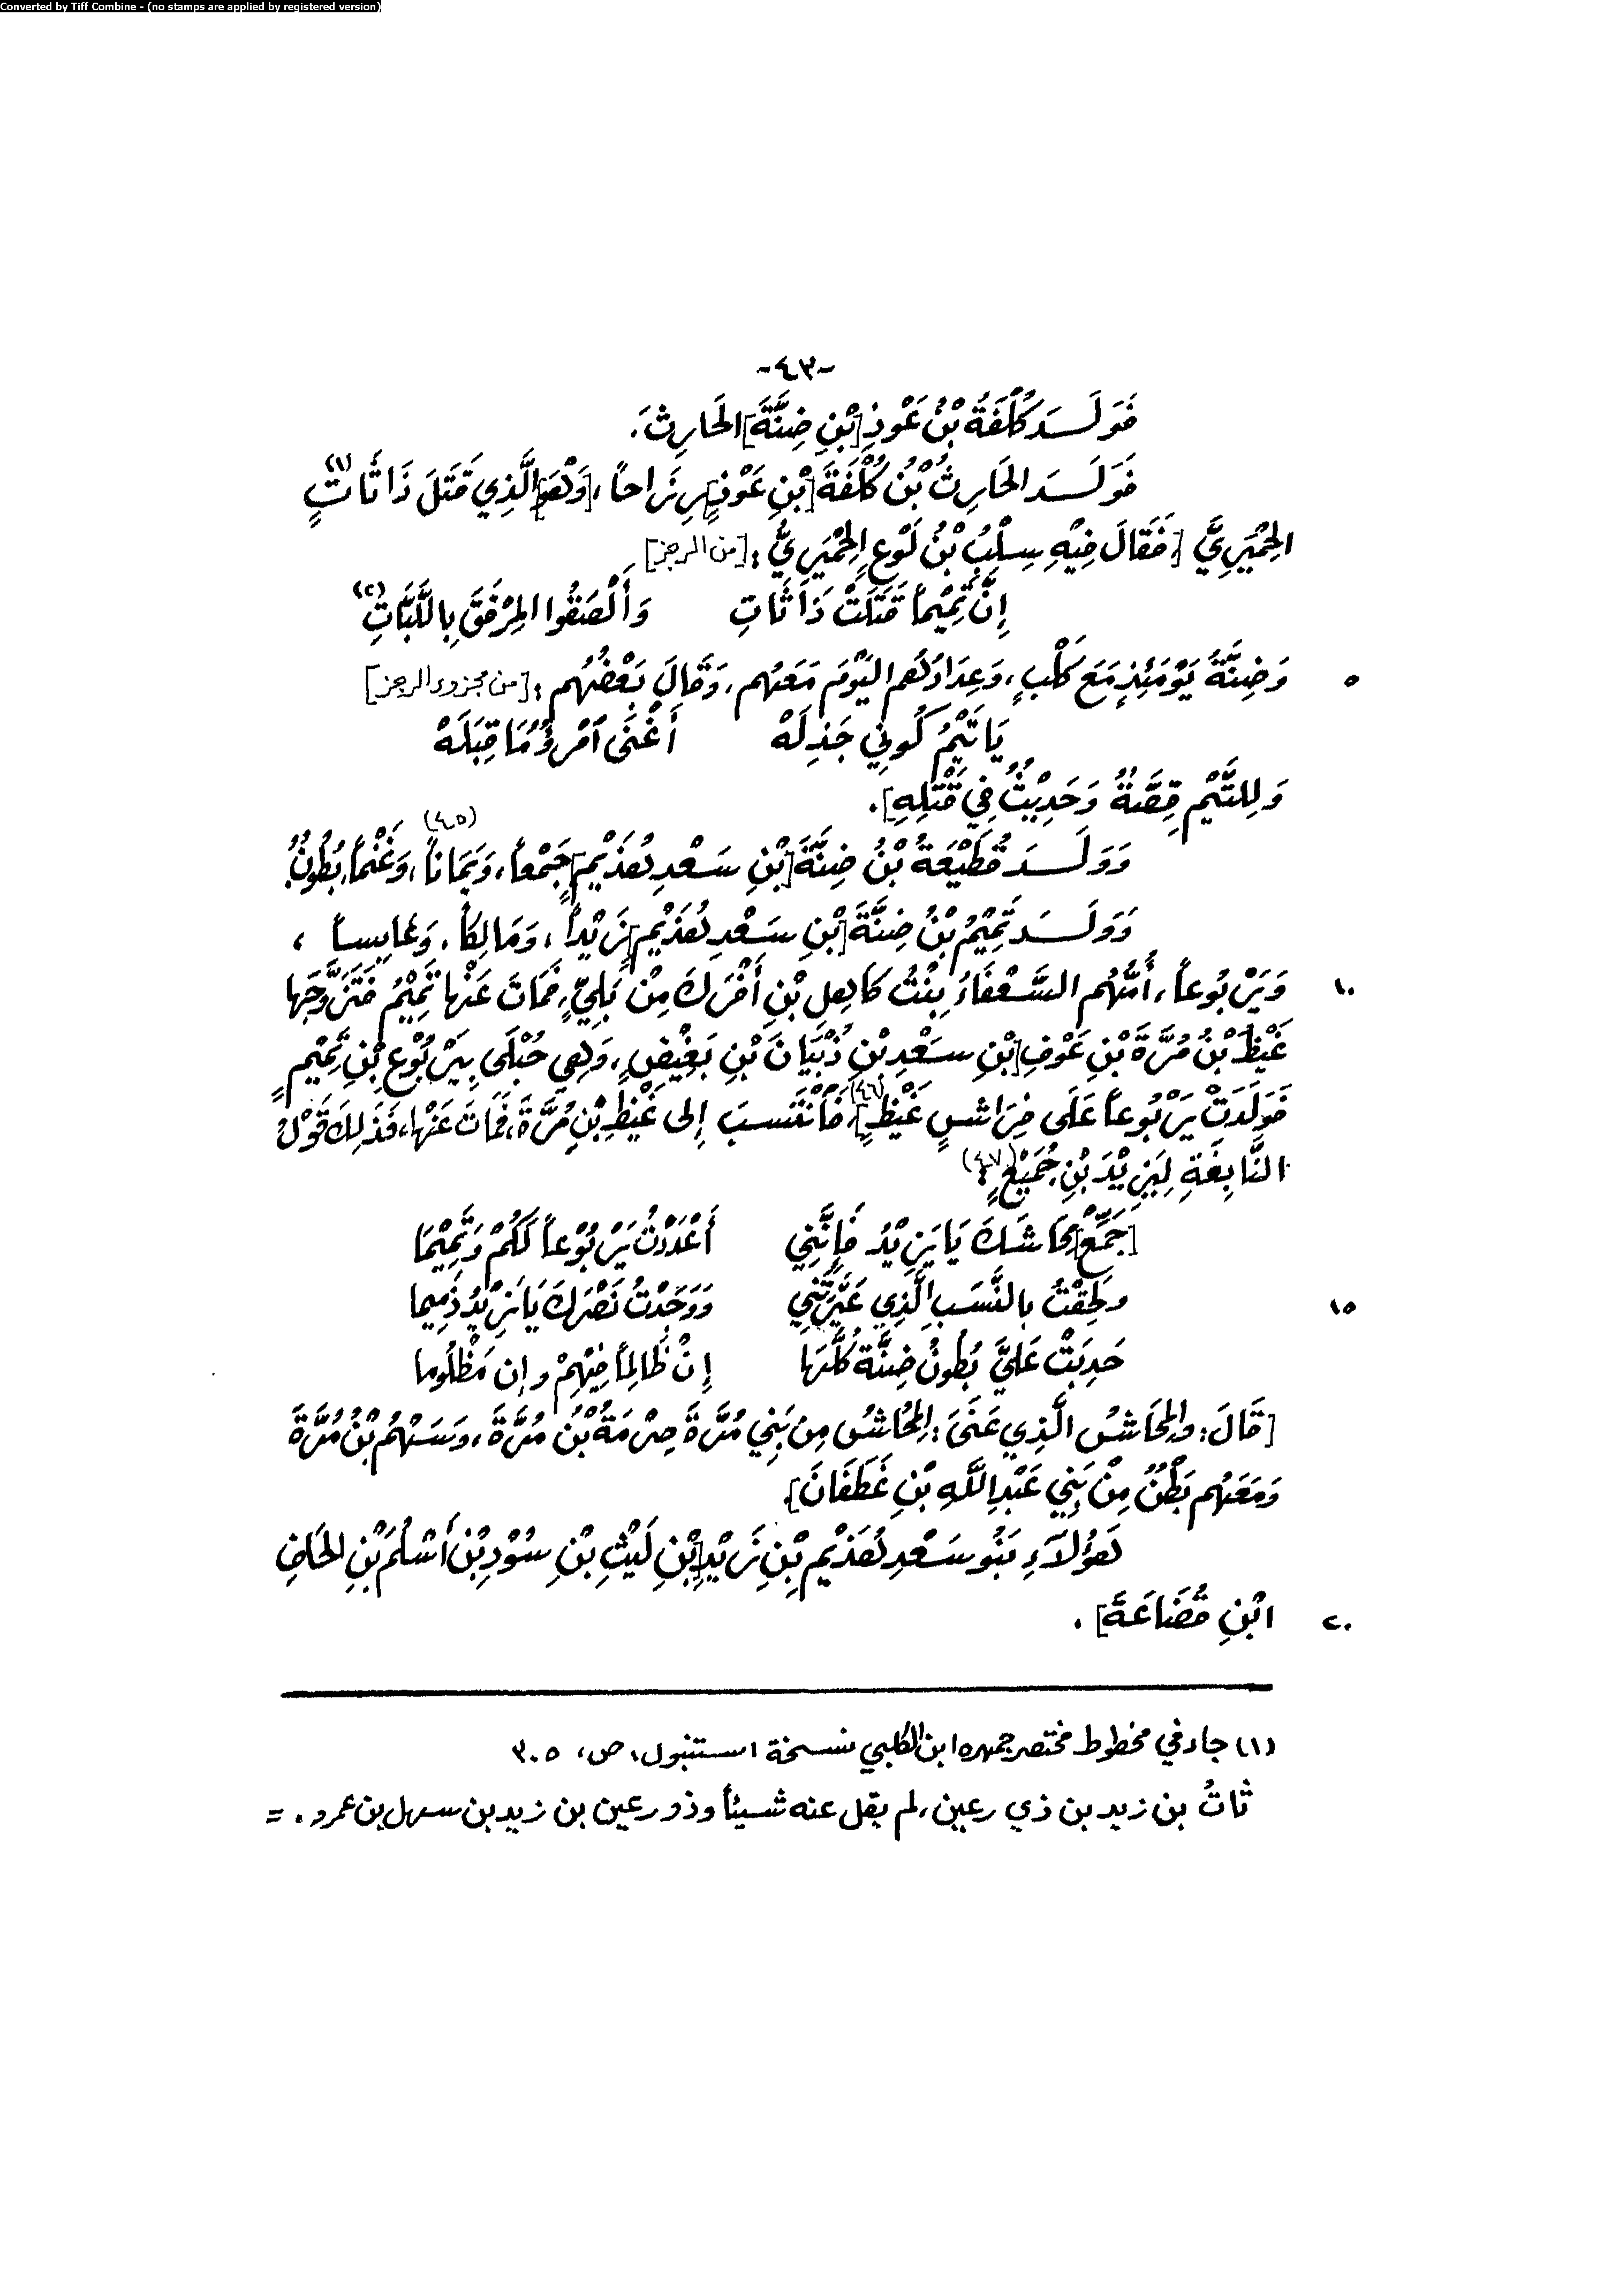 Converted by Tiff Combine - (no stamps are applied by registered version)
-٤٣-
فَوَلَـدَ كُلْفَةُ بْنُ عَوْذِ [بْنِ ضِنَّةَ] الحَارِثَ.
فَوَلَـدَ الحَارِثُ بْنُ كُلْفَةَ [بْنِ عَوْذٍ] رِزَاحاً، [وَهُوَ] الَّذِي قَتَلَ ذَا ثَاتٍ (١)
الحِمْيَرِيَّ [، فَقَالَ فِيْهِ سِلْبُ بْنُ لَوْعٍ الحِمْيَرِيُّ: [من الرجز]
إِنَّ تَمِيْماً قَتَلَتْ ذَا ثَاتِ وَأَلْصَقُوا المِرْفَقَ بِاللَّبَّاتِ (٢)
٥ وَضِنَّةُ يَوْمَئِذٍ مَعَ كَلْبٍ، وَعِدَادُهُم اليَوْمَ مَعَهُم، وَقَالَ بَعْضُهُم: [من مجزوء الرجز]
يَا تَيْمُ كُونِي جَذِلَهْ أَغْنَى امْرُؤٌ مَا قِبَلَهْ
وَلِلتَّيْمِ قِصَّةٌ وَحَدِيْثٌ فِي قَتْلِهِ].
وَوَلَـدَ قُطَيْعَةُ بْنُ ضِنَّةَ [بْنِ سَعْدِ هُذَيْمٍ] جَمْعاً، وَيَمَاناً، (٤٥) وَغَنْماً، بُطُونٌ.
وَوَلَـدَ تَمِيْمُ بْنُ ضِنَّةَ [بْنِ سَعْدِ هُذَيْمٍ] زَيْداً، وَمَالِكاً، وَعَابِساً،
١٠ وَيَرْبُوعاً، أُمُّهُم السَّعْفَاءُ بِنْتُ كَاهِلِ بْنِ أَفْرَكَ مِنْ بَلِيٍّ، فَمَاتَ عَنْهَا تَمِيْمُ فَتَزَوَّجَهَا
غَيْظُ بْنُ مُرَّةَ بْنِ عَوْفِ [بْنِ سَعْدِ بْنِ ذُبْيَانَ بْنِ بَغِيْضٍ، وَهِيَ حُبْلَى بِيَرْبُوعِ بْنِ تَمِيْمٍ
فَوَلَدَتْ يَرْبُوعاً عَلَى فِرَاشِ غَيْظٍ] (٤٦)، فَانْتَسَبَ إِلى غَيْظِ بْنِ مُرَّةَ، فَمَاتَ عَنْهَا، فَذَلِكَ قَوْلُ
النَّابِغَةِ لِيَزِيْدَ بْنِ جُمَيْعٍ (٤٧):
[جَمِّعْ] مِحَاشَكَ يَا يَزِيْدُ فَإِنَّنِي أَعْدَدْتُ يَرْبُوعاً لَكُمْ وَتَمِيْمَا
١٥ وَلَحِقْتُ بِالنَّسَبِ الَّذِي عَيَّرْتَنِي وَوَجَدْتُ نَصْرَكَ يَا يَزِيْدُ ذَمِيمَا
حَدِبَتْ عَلَيَّ بُطُونُ ضِنَّةَ كُلُّهَا إِنْ ظَالِماً فِيْهِمْ وإن مَظْلُومَا
[قَالَ: وَالمِحَاشُ الَّذِي عَنَى: المِحَاشُ مِنْ بَنِي مُرَّةَ صِرْمَةُ بْنُ مُرَّةَ، وَسَهْمُ بْنُ مُرَّةَ
وَمَعَهُم بَطْنٌ مِنْ بَنِي عَبْدِ اللَّهِ بْنِ غَطَفَانَ].
هَؤُلاَءِ بَنُو سَعْدِ هُذَيْمِ بْنِ زَيْدِ [بْنِ لَيْثِ بْنِ سُوْدِ بْنِ أَسْلُمَ بْنِ الحَافِ
٢٠ ابْنِ قُضَاعَةَ].
(١) جاء في مخطوط مختصر جمهرة ابن الكلبي نسخة استنبول، ص، ٣٠٥
ثاتُ بن زيد بن ذي رعين، لم يقل عنه شيئاً وذو رعين بن زيد بن سهل بن عمرو. =